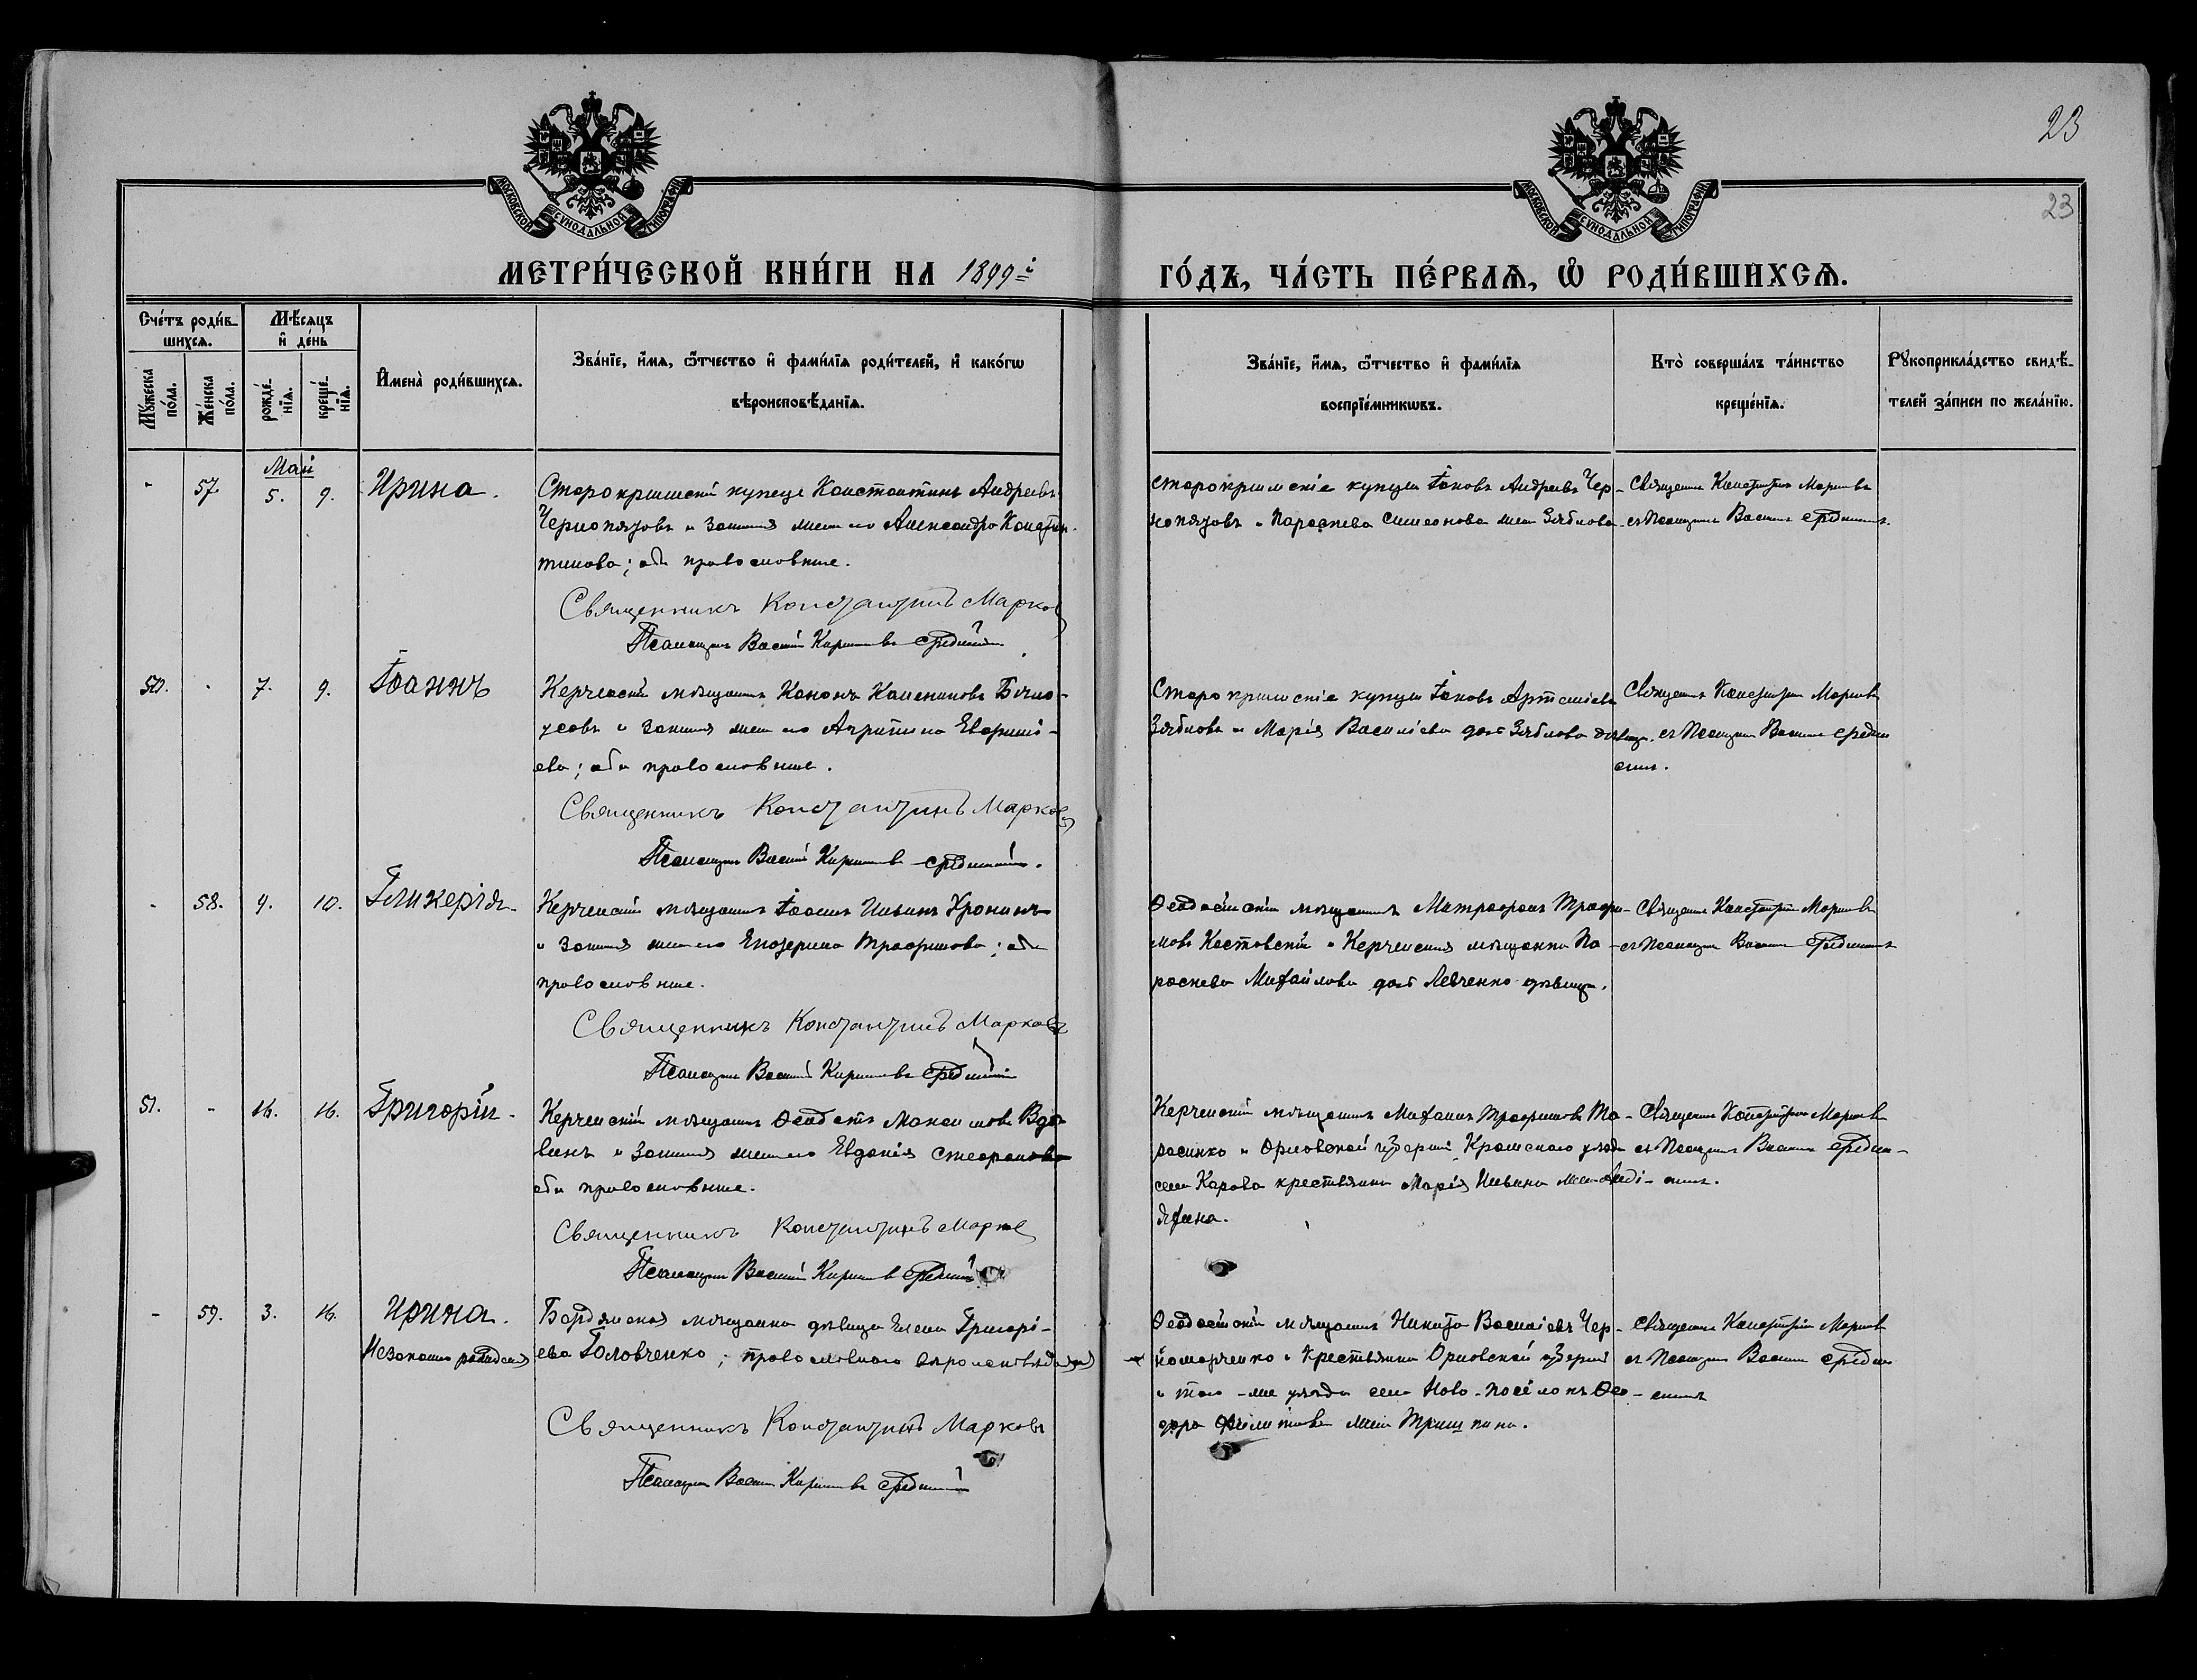 23
23
МОСКОВСКОЙ СУНОДАЛЬНОЙ ТИПОГРАФІИ
МОСКОВСКОЙ СУНОДАЛЬНОЙ ТИПОГРАФІИ
МЕТРИ́ЧЕСКОЙ КНИ́ГИ НА 1899 й ГО́ДЪ, ЧА́СТЬ ПЕ́РВАѦ, Ѡ҆ РОДИ́ВШИХСѦ.
Счéтъ роди́в-
шихсѧ.
Мѣ́сѧцъ
и҆ дéнь
Мꙋ́жеска
пóла.
Жéнска
пóла.
рождé-
нїѧ.
крещé-
нїѧ.
И҆менà роди́вшихсѧ.
Звáнїе, и҆́мѧ, ѻ҆́тчество и҆ фами́лїѧ роди́телей, и҆ какóгѡ
вѣроисповѣ́данїѧ.
Звáнїе, и҆́мѧ, ѻ҆́тчество и҆ фами́лїѧ
воспрїéмникѡвъ.
Ктò совершáлъ тáинство
крещéнїѧ.
Рꙋкоприклáдство свидѣ́-
телей зáписи по желáнїю.
Май
- 57. 5. 9. Ирина.
Старокрымскій купецъ Константинъ Андреевъ
Чернопязовъ и законная жена его Александра Констан-
тинова; оба православные.
Священникъ Константинъ Марковъ
Псаломщикъ Василій
Старокрымскіе купцы Іаковъ Андреевъ Чер-
нопязовъ и Параскева Симеонова жена Зяблова
Священникъ Константинъ Марковъ
съ Псаломщикомъ Василіемъ
50. - 7. 9. Іоаннъ
Керченскій мѣщанинъ Кононъ Каленниковъ Бѣло-
усовъ и законная жена его Агрипина Евфимі-
ева; оба православные.
Священникъ Константинъ Марковъ
Псаломщикъ Василій
Старокрымскіе купцы Іаковъ Артеміевъ
Зябловъ и Марія Василіева дочь Зяблова дѣвица.
Священникъ Константинъ Марковъ
съ Псаломщикомъ Василіемъ
- 58. 9. 10. Гликерія
Керченскій мѣщанинъ Іоаннъ Ильинъ Кронинъ
и законная жена его Екатерина Трофимова; оба
православные.
Священникъ Константинъ Марковъ
Псаломщикъ Василій
Ѳеодосійскій мѣщанинъ Митрофанъ Трофи-
мовъ Костовскій и Керченская мѣщанка Па-
раскева Михайлова дочь Левченко дѣвица.
Священникъ Константинъ Марковъ
съ Псаломщикомъ Василіемъ
51. - 16. 16. Григорій
Керченскій мѣщанинъ Ѳеодотъ Максимовъ Вдо-
винъ и законная жена его Евдокія Стефанова
оба православные.
Священникъ Константинъ Марковъ
Псаломщикъ Василій
Керченскій мѣщанинъ Михаилъ Трофимовъ Та-
расенко и Орловской губерніи Кромского уѣзда
села Карова крестьянка Марія Ильина жена
Священникъ Константинъ Марковъ
съ Псаломщикомъ Василіемъ
- 59. 3. 16. Ирина.
Незаконно рожденная
Бердянская мѣщанка дѣвица Елена Григорі-
ева Головченко; православного вѣроисповѣданія
Священникъ Константинъ Марковъ
Псаломщикъ Василій
Ѳеодосійскій мѣщанинъ Никита Василіевъ Чер-
номорченко и крестьянка Орловской губерніи
и того-же уѣзда села Ново-посёлокъ Ѳео-
дора Филипова жена Тришкина.
Священникъ Константинъ Марковъ
съ Псаломщикомъ Василіемъ